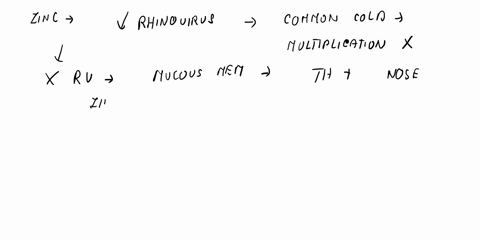 ZINC → ↓ RHINOVIRUS → COMMON COLD →
MULTIPLICATION X
↓
X RV → MUCOUS MEM → TH + NOSE
ZI